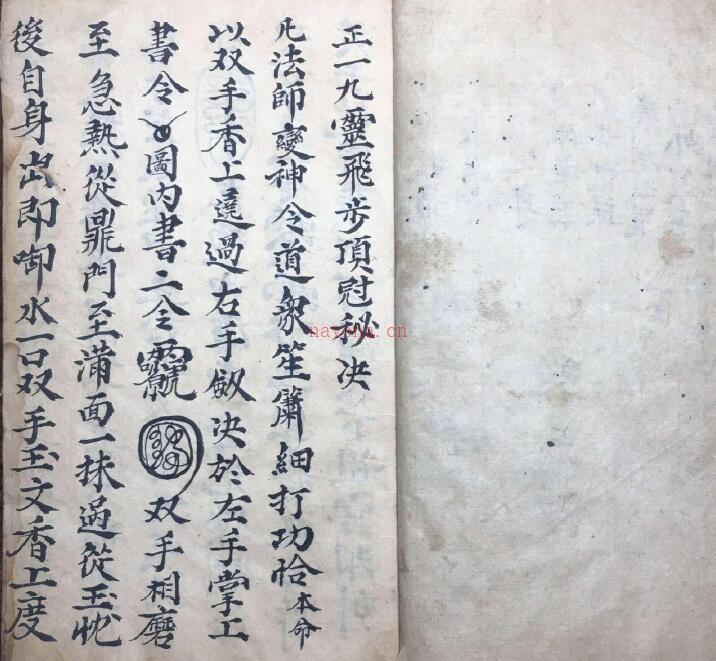 正一九靈飛步頂尅秘决
凡法師變神令道衆笙簫細打功恰本命
以双手香上遶過右手劔决於左手掌工
書令圖内書二令双手相磨
至急熱從鼎門至滿面一抹過從玉忱
後自身出即啣水一口双手玉文香上度